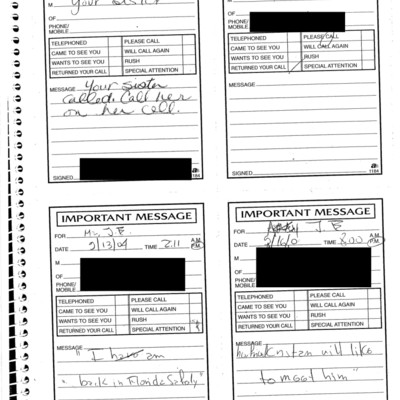 M Your Sister
OF
PHONE/
MOBILE
TELEPHONED PLEASE CALL
CAME TO SEE YOU WILL CALL AGAIN
WANTS TO SEE YOU RUSH
RETURNED YOUR CALL SPECIAL ATTENTION
MESSAGE Your sister
called. Call her
on her cell.
SIGNED 1184
OF
PHONE/
MOBILE
TELEPHONED PLEASE CALL
CAME TO SEE YOU WILL CALL AGAIN
WANTS TO SEE YOU RUSH
RETURNED YOUR CALL SPECIAL ATTENTION
MESSAGE
SIGNED 1184
IMPORTANT MESSAGE
FOR Mr. J.E.
DATE 2/13/04 TIME 2:11 A.M. P.M.
M
OF
PHONE/
MOBILE
TELEPHONED PLEASE CALL
CAME TO SEE YOU WILL CALL AGAIN
WANTS TO SEE YOU RUSH
RETURNED YOUR CALL SPECIAL ATTENTION
MESSAGE
"I am
back in Florida Safely"
IMPORTANT MESSAGE
FOR J E
DATE TIME 8:00 A.M. P.M.
M
OF
PHONE/
MOBILE
TELEPHONED PLEASE CALL
CAME TO SEE YOU WILL CALL AGAIN
WANTS TO SEE YOU RUSH
RETURNED YOUR CALL SPECIAL ATTENTION
MESSAGE
will like
to meet him"